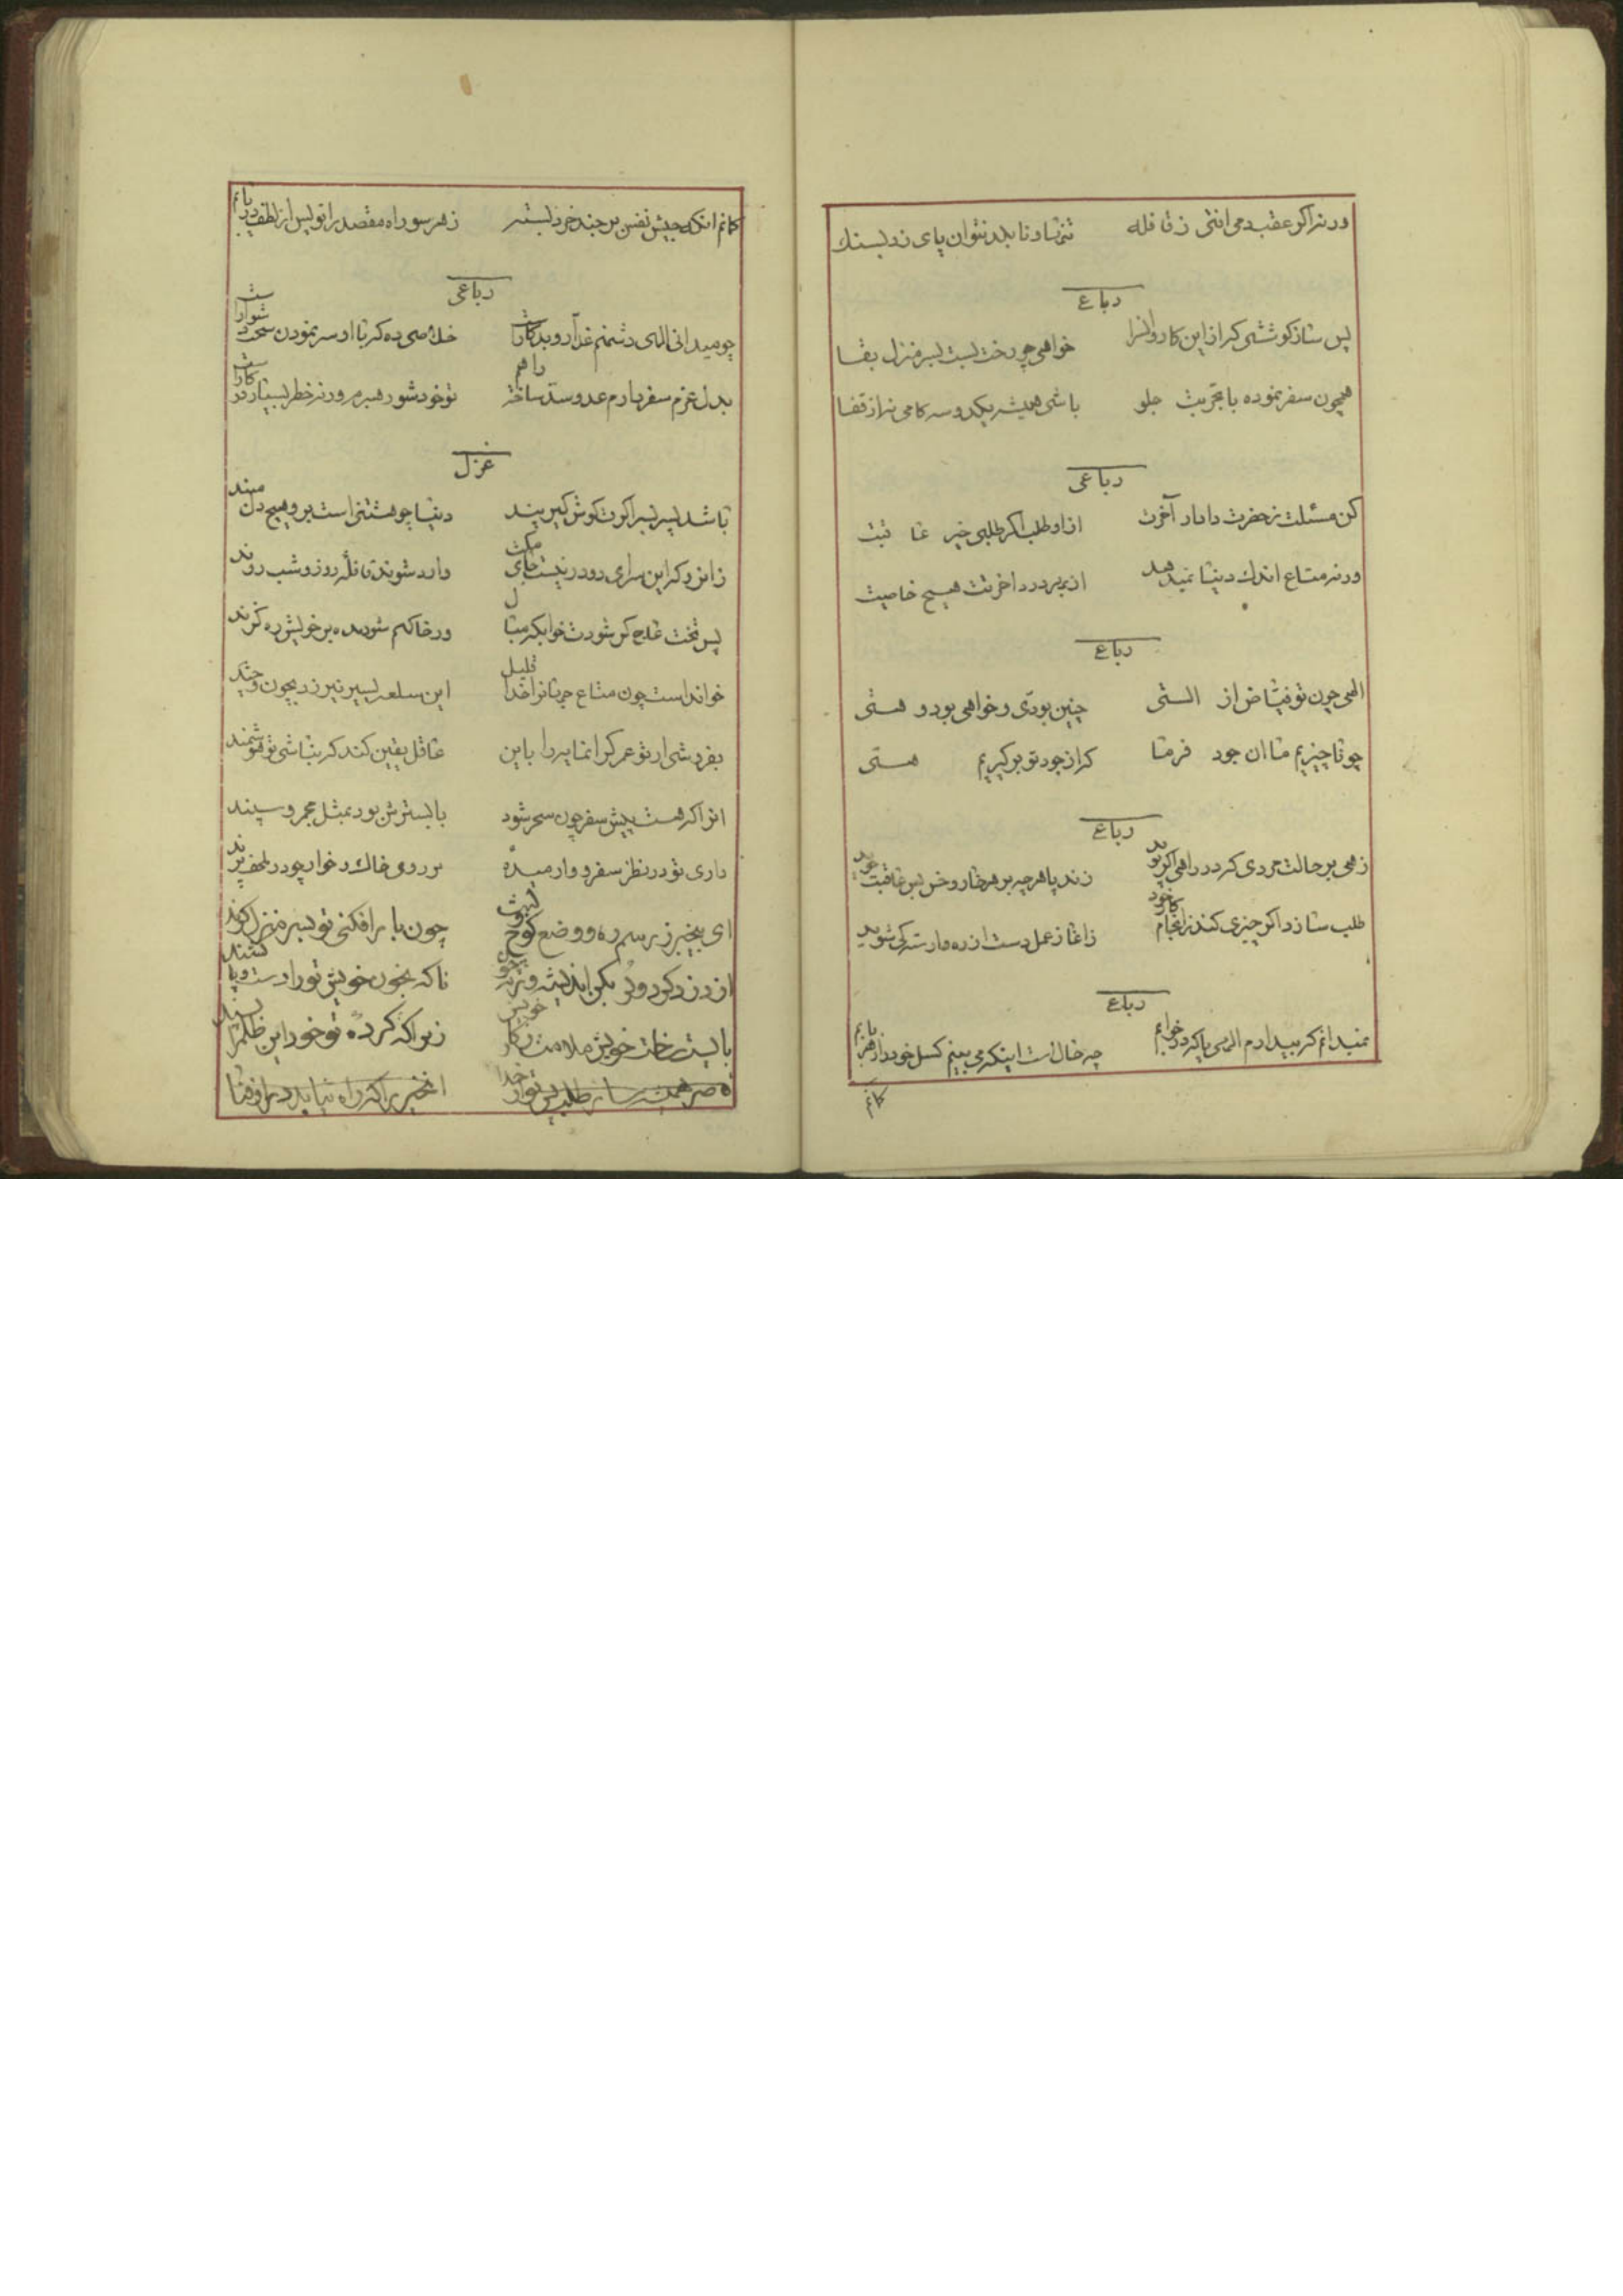 ورنه اگر عقب می افتی ز قافله تن شاد نابلد نتوان پای زد بسنك
رباع
پس ساز كوششی كز این كاروانسرا خواهی چو رخت بست بسر منزل بقا
همچون سفر نموده با تجربت جلو باشی همیشه یكدو سه كامی نه از قفا
رباعی
كن مسئلت ز حضرت دادار آخرت از او طلب اكر طلبی خیر عا قبت
ورنه متاع اندك دنیا نمیدهد از بهر درد اخرتت هیچ خاصیت
رباع
الهی چون تو فیاض از الستی چنین بودی و خواهی بود و هستی
چو ناچیزیم ما ان جود فرما كه از جود تو بر كیریم هستی
رباع
زهی بر حالت مردی كه در راهی اكر پوید زند پا هر چه بر هر خار و خس بس عاقبت جوید
طلب سازد اكر چیزی كند ز انجام كار خود ز اغاز عمل دست از ره وارسته كی شوید
رباع
نمیدانم كه بیدارم الهی یا كه در خوابم چه حال است اینكه می بینم كسل خود را ز هر بابم
كانم
كانم انكه جیش نفس بر جند خرد بسته ز هر سو راه مقصد را تو پس از لطف دریابم
رباعی
چو میدانی الهی دشمنم غدار و بدكار است خلاصی ده كه با او سر نمودن سخت دشوار است
بدل عزم سفر دارم عدو سد ساخته راهم تو خود شو رهبرم ورنه خطر بسیار در كار است
غزل
باشد پسر پسر اكرت كوش كیر پند دنیا چو هشتنی است بر و هیچ دل مبند
زانرو كه این سرای دو در نیست جای مكث وارد شوند قافله روز و شب روند
پس تخت عاج كر شودت خوابكه مبال ور خاكهم شود مده بر خویش ره كزند
خوانداست چون متاع جهانرا خدا قلیل این سلعه پسیر نیرزد بچون و چند
بفروشی ار تو عمر كرانمایه را باین عاقل یقین كند كه نباشی تو هوشمند
انرا كه هست پیش سفر چون سحر شود با بسترش بود بمثل مجمر و سپند
داری تو در نظر سفر و وار میده بر روی خاك خوار چو در ملحف پرند
ای بیخبر ز رسم ره و وضع كوچ چون بار افكنی تو بسر منزل
از دزد كرد و بكن اندیشه و ناكه بخون خویش تو را دست و پا كشند
بایست رخت خویش ملامت ز كار خویش زیرا كه كرده تو خود این ظلم را